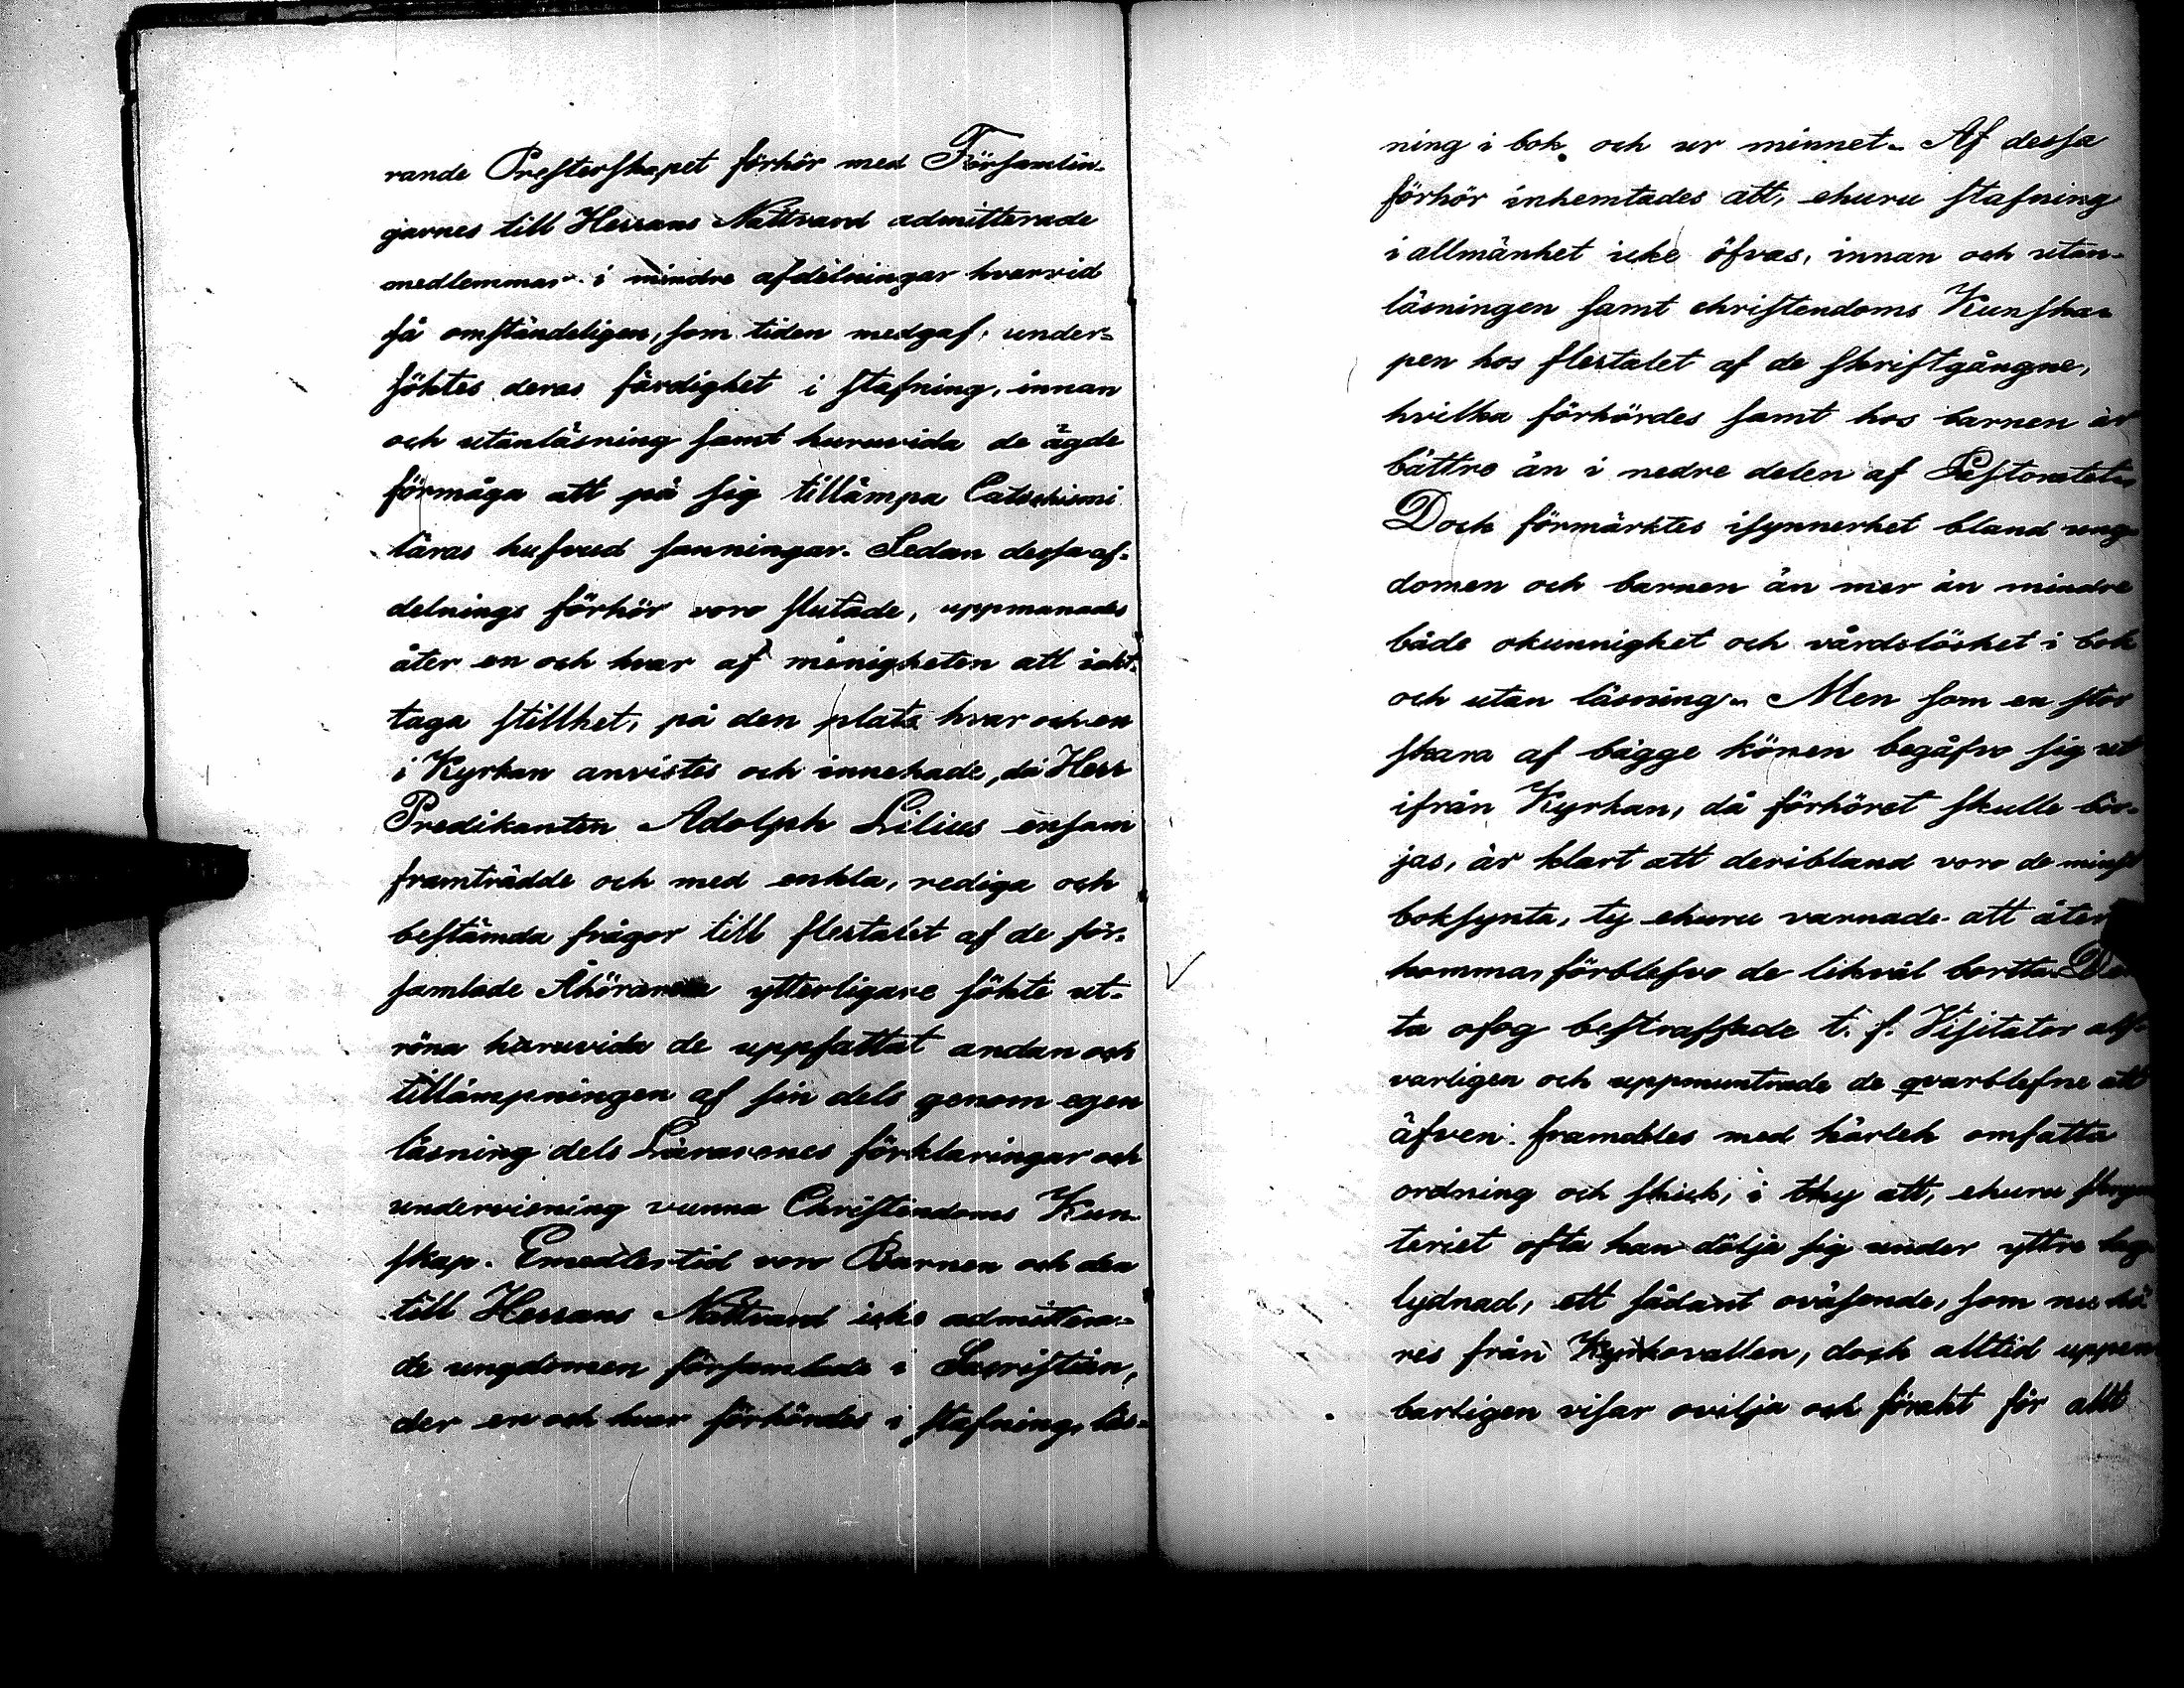 rande Presterskapet förhör med Församlin-
garnes till Herrans Nattvard admitterade
medlemmar i mindre afdelningar hvarvid
så omständeligen, som tiden medgaf, under-
söktes deras färdighet i stafning, innan
och utanläsning samt huruvida de ägde
förmåga att på sig tillämpa Catechismi
läras hufvud sanningar. Sedan dessa af-
delnings förhör voro slutade, uppmanades
åter en och hvar af menigheten att iakt-
taga stillhet, på den plats hvar och en
i Kyrkan anvistes och innehade, då Herr
Predikanten Adolph Lilius ensam
framträdde och med enkla, rediga och
bestämda frågor till flertalet af de för-
samlade Åhörarne ytterligare sökte ut-
röna huruvida de uppfattat andan och
tillämpningen af sin dels genom egen
läsning dels Lärarenes förklaringar och
undervisning vunna Christendoms Kun-
skap. Emedlertid voro Barnen och den
till Herrans Nattvard icke admittera-
de ungdomen församlade i Sacristian,
der en och hvar förhördes i stafning, läs-
ning i bok och ur minnet. Af dessa
förhör inhemtades att, ehuru stafning
i allmänhet icke öfvas, innan och utan-
läsningen samt christendoms Kunska-
pen hos flertalet af de skriftgångne,
hvilka förhördes samt hos barnen är
bättre än i nedre delen af Pastoratet.
Doch förmärktes isynnerhet bland ung
domen och barnen än mer än mindre
både okunnighet och vårdslöshet i bok
och utan läsning. Men som en stor
skara af bägge könen begåfvo sig ut
ifrån Kyrkan, då förhöret skulle bör-
jas, är klart att deribland voro de minst
boksynta, ty ehuru varnade att åter
komma, förblefvo de likväl borta.
ta ofog bestraffade t. f. Visitator alf-
varligen och uppmuntrade de qvarblefne att
äfven framdeles med kärlek omfatta
ordning och skick, i thy att, ehuru
teriet ofta kan dölja sig under yttre lag
lydnad, ett sådant oväsende, som nu hö
res från Kyrkovallen, doch alltid uppen
barligen visar ovilja och förakt för allt